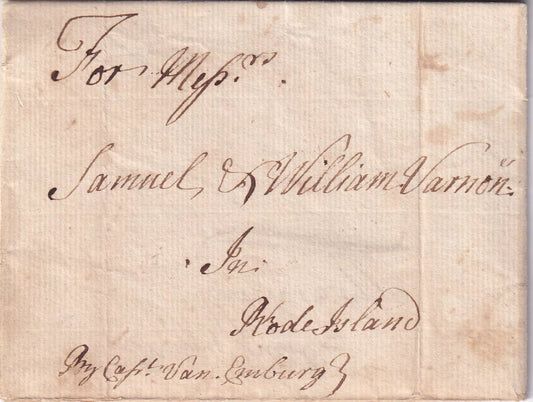 For Mess.rs
Samuel & William Varnon
In
Rhode Island
By Capt. Van Emburg